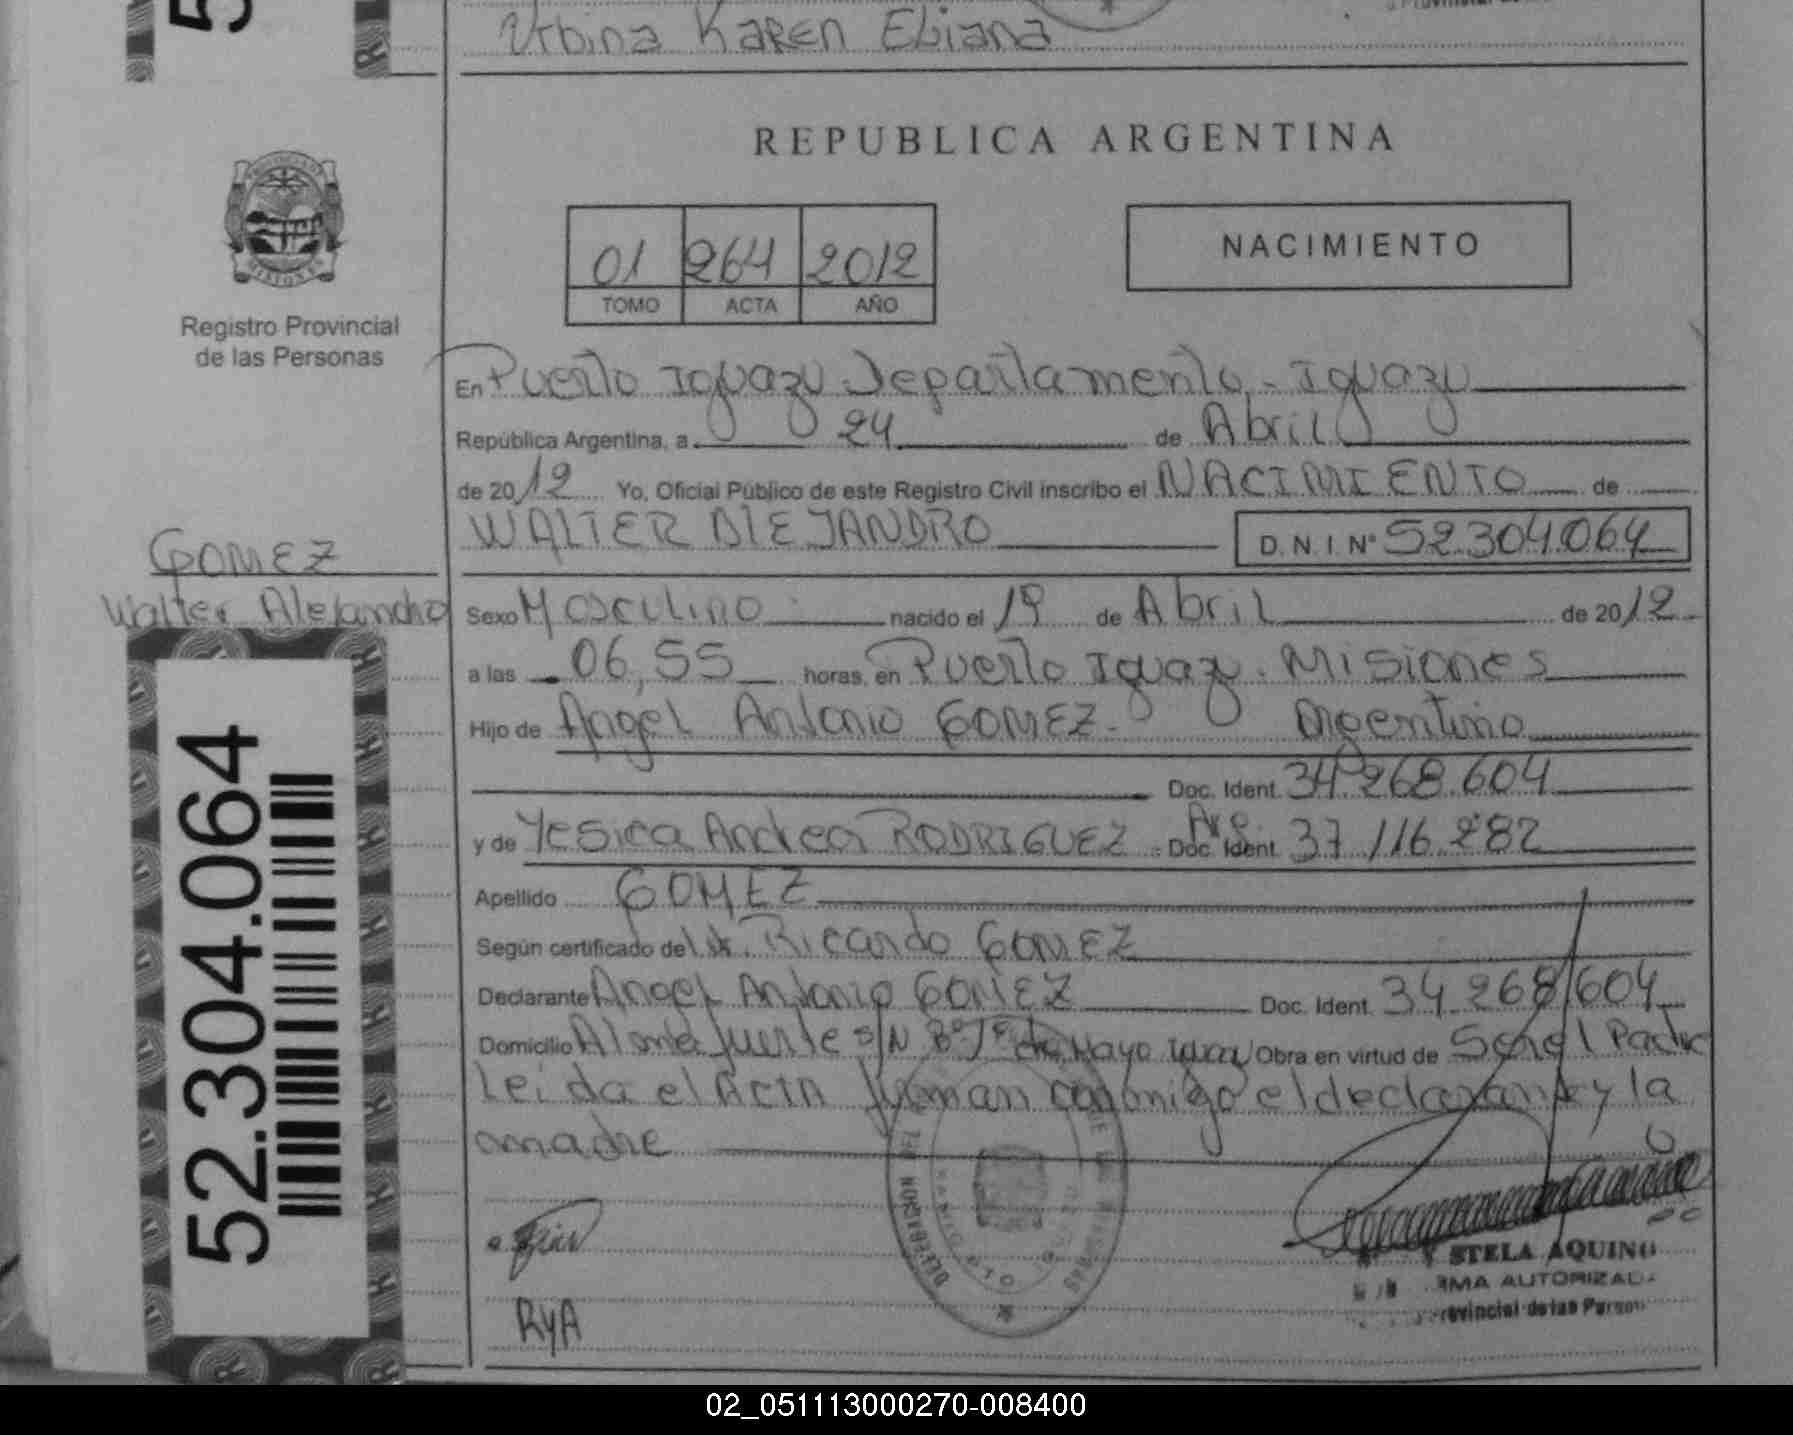 Urbina KAREN Eliana
REPUBLICA ARGENTINA
01 264 2012
TOMO ACTA AÑO
NACIMIENTO
Registro Provincial
de las Personas
En Puerto Iguazu Departamento - Iguazu
República Argentina, a 24 de Abril
de 2012 Yo, Oficial Público de este Registro Civil inscribo el NACIMIENTO de
WALTER ALEJANDRO D.N.I. Nº 52.304.064
GOMEZ
Walter Alejandro
Sexo Masculino nacido el 19 de Abril de 2012
a las 06,55 horas, en Puerto Iguazu. Misiones
Hijo de Angel Antonio GOMEZ. Argentino
Doc. Ident. 34.268.604
y de Yesica Andrea RODRIGUEZ Arg. Doc. Ident. 37.116.282
Apellido GOMEZ
Según certificado del Ricardo GOMEZ
Declarante Angel Antonio GOMEZ Doc. Ident. 34.268.604
Domicilio Almafuerte S/N Bº 1º de Mayo Obra en virtud de Ser el Padre
Leida el Acta firman conmigo el declarante y la
madre
52.304.064
RyA
STELA AQUINO
02_051113000270-008400